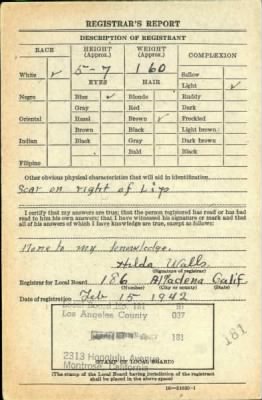 REGISTRAR'S REPORT
DESCRIPTION OF REGISTRANT
RACE HEIGHT (Approx.) WEIGHT (Approx.) COMPLEXION
White ✓ 5-7 160 Sallow
EYES HAIR Light ✓
Negro Blue ✓ Blonde Ruddy
Gray Red Dark
Oriental Hazel Brown ✓ Freckled
Brown Black Light brown
Indian Black Gray Dark brown
Bald Black
Filipino
Other obvious physical characteristics that will aid in identification
Scar on right of Lip
I certify that my answers are true; that the person registered has read or has had
read to him his own answers; that I have witnessed his signature or mark and that
all of his answers of which I have knowledge are true, except as follows:
None to my knowledge.
Hilda Walls
(Signature of registrar)
Registrar for Local Board 186 Altadena Calif
(Number) (City or county) (State)
Date of registration Feb 15 1942
Local Board No. 181
Los Angeles County 037
181
181
2313 Honolulu Avenue
Montrose, California
(STAMP OF LOCAL BOARD)
(The stamp of the Local Board having jurisdiction of the registrant
shall be placed in the above space)